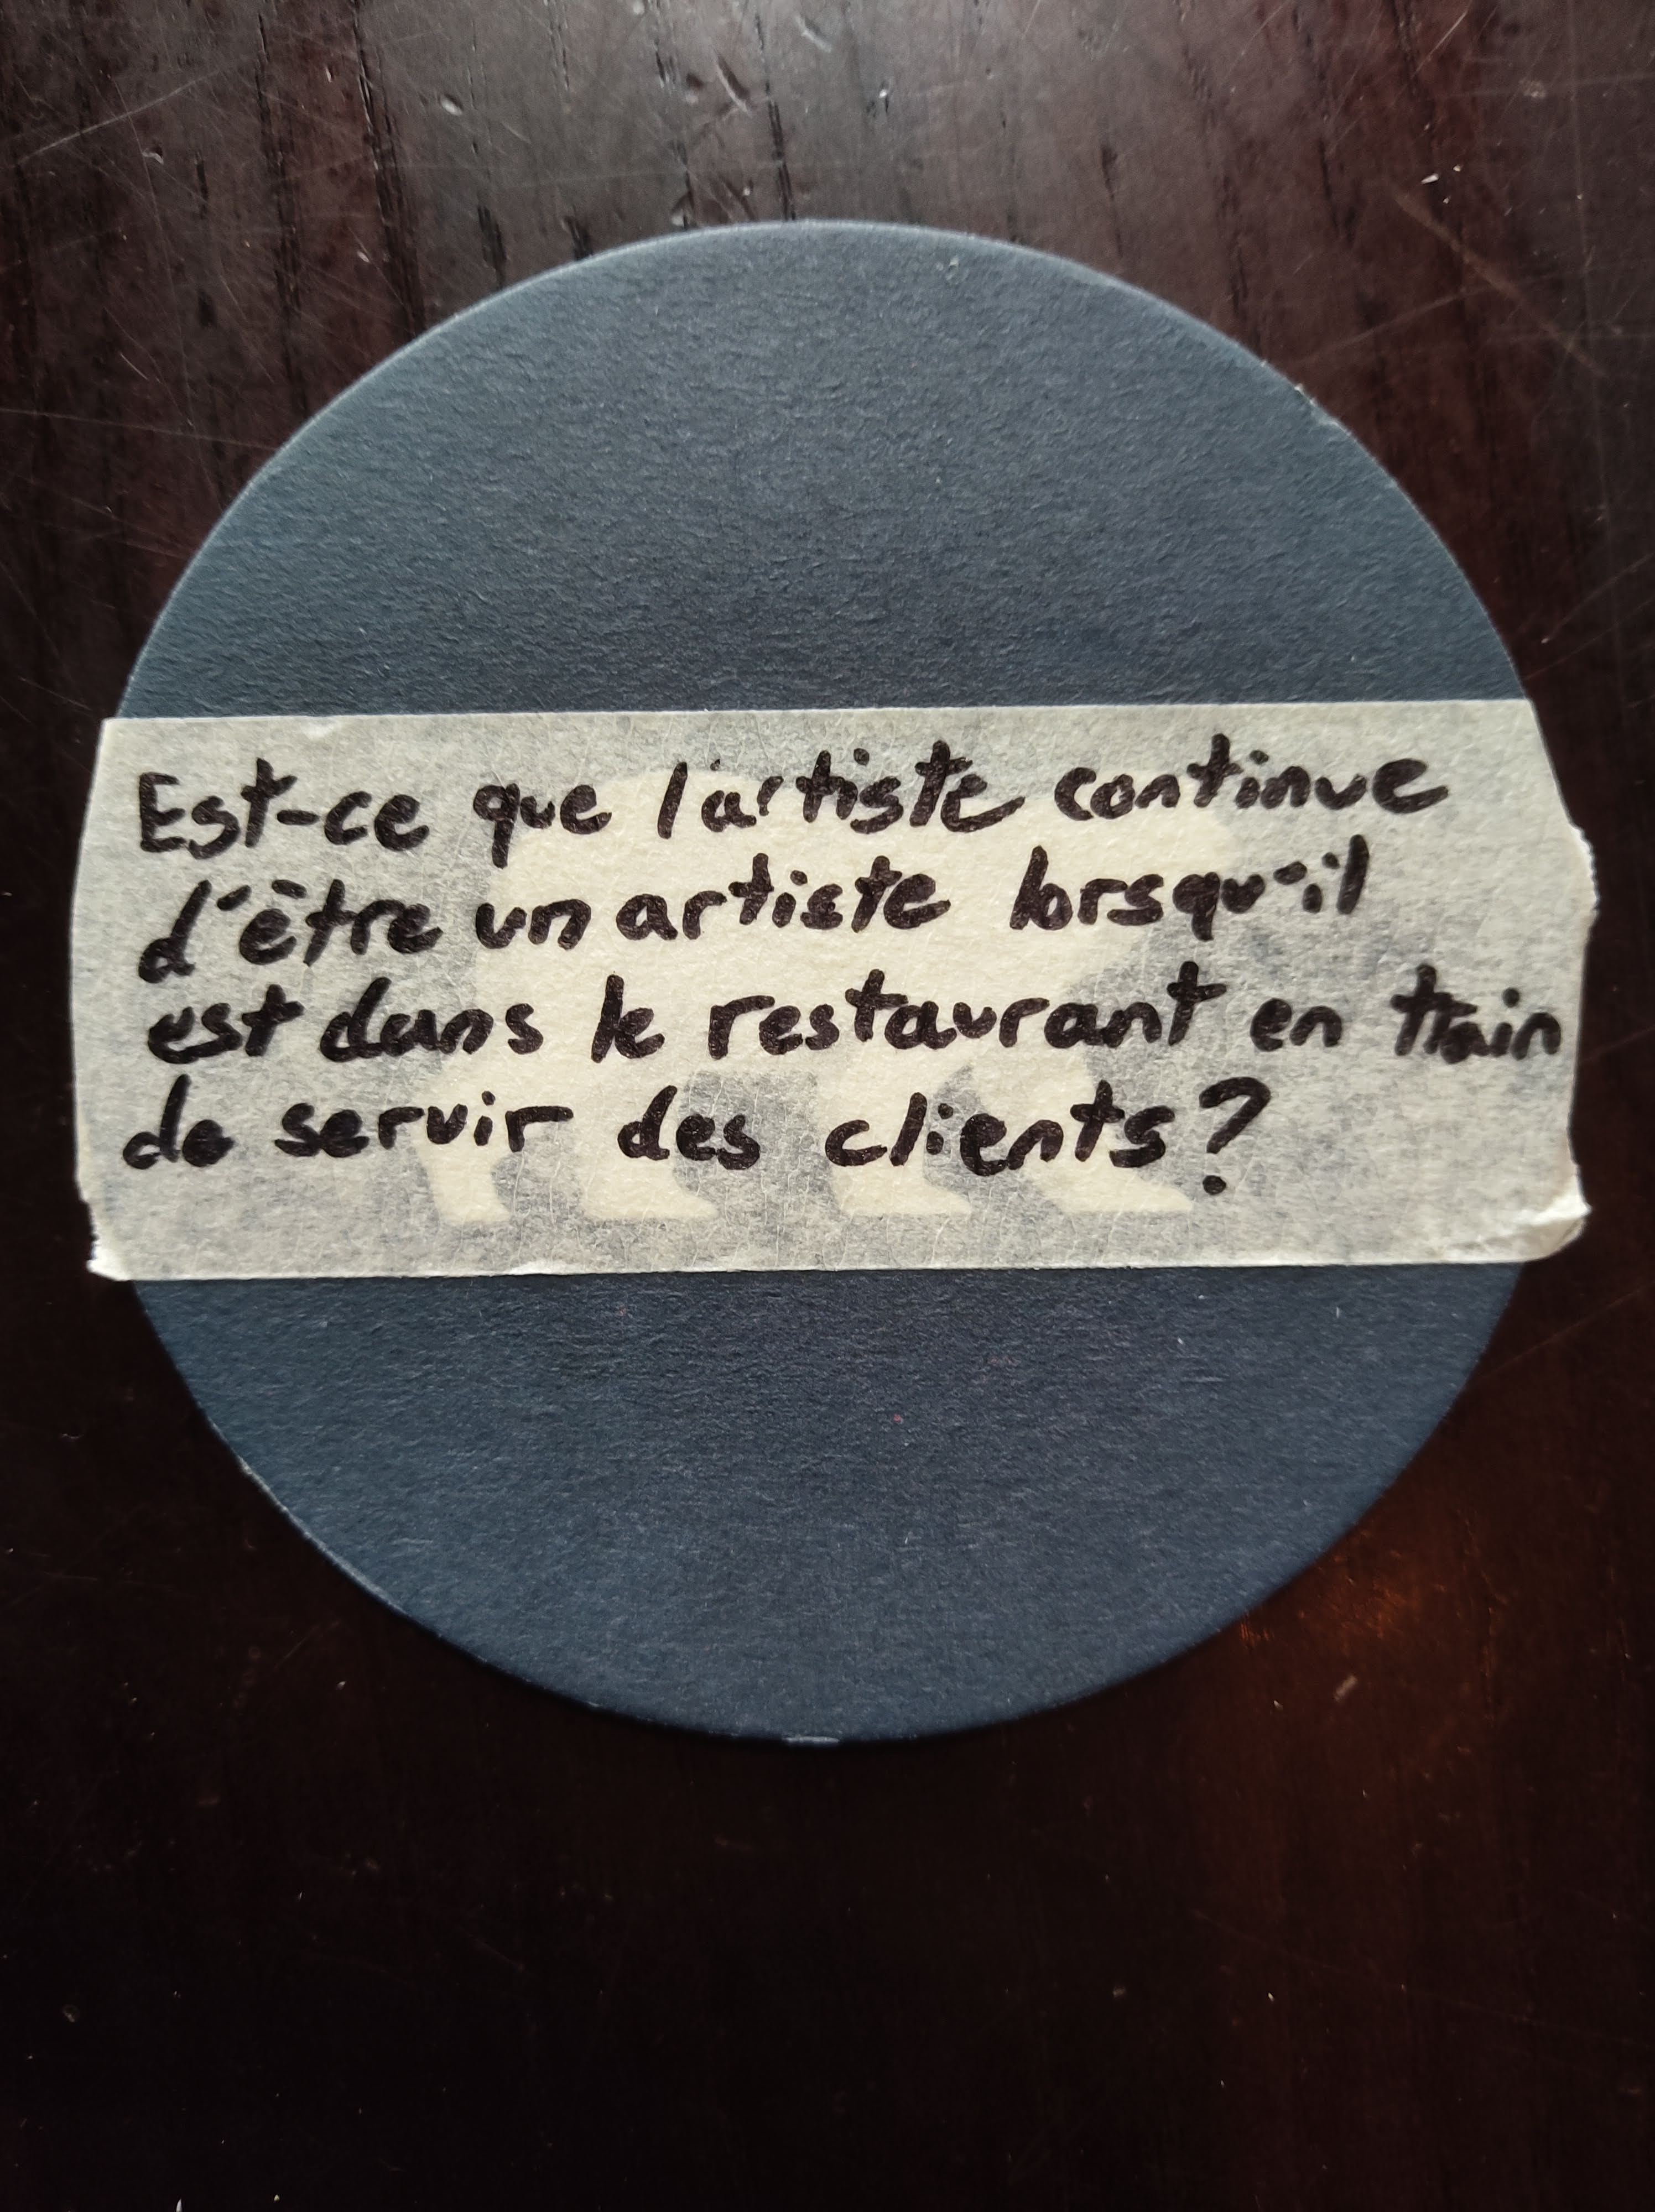 Est-ce que l'artiste continue
d'être un artiste lorsqu'il
est dans le restaurant en train
de servir des clients?